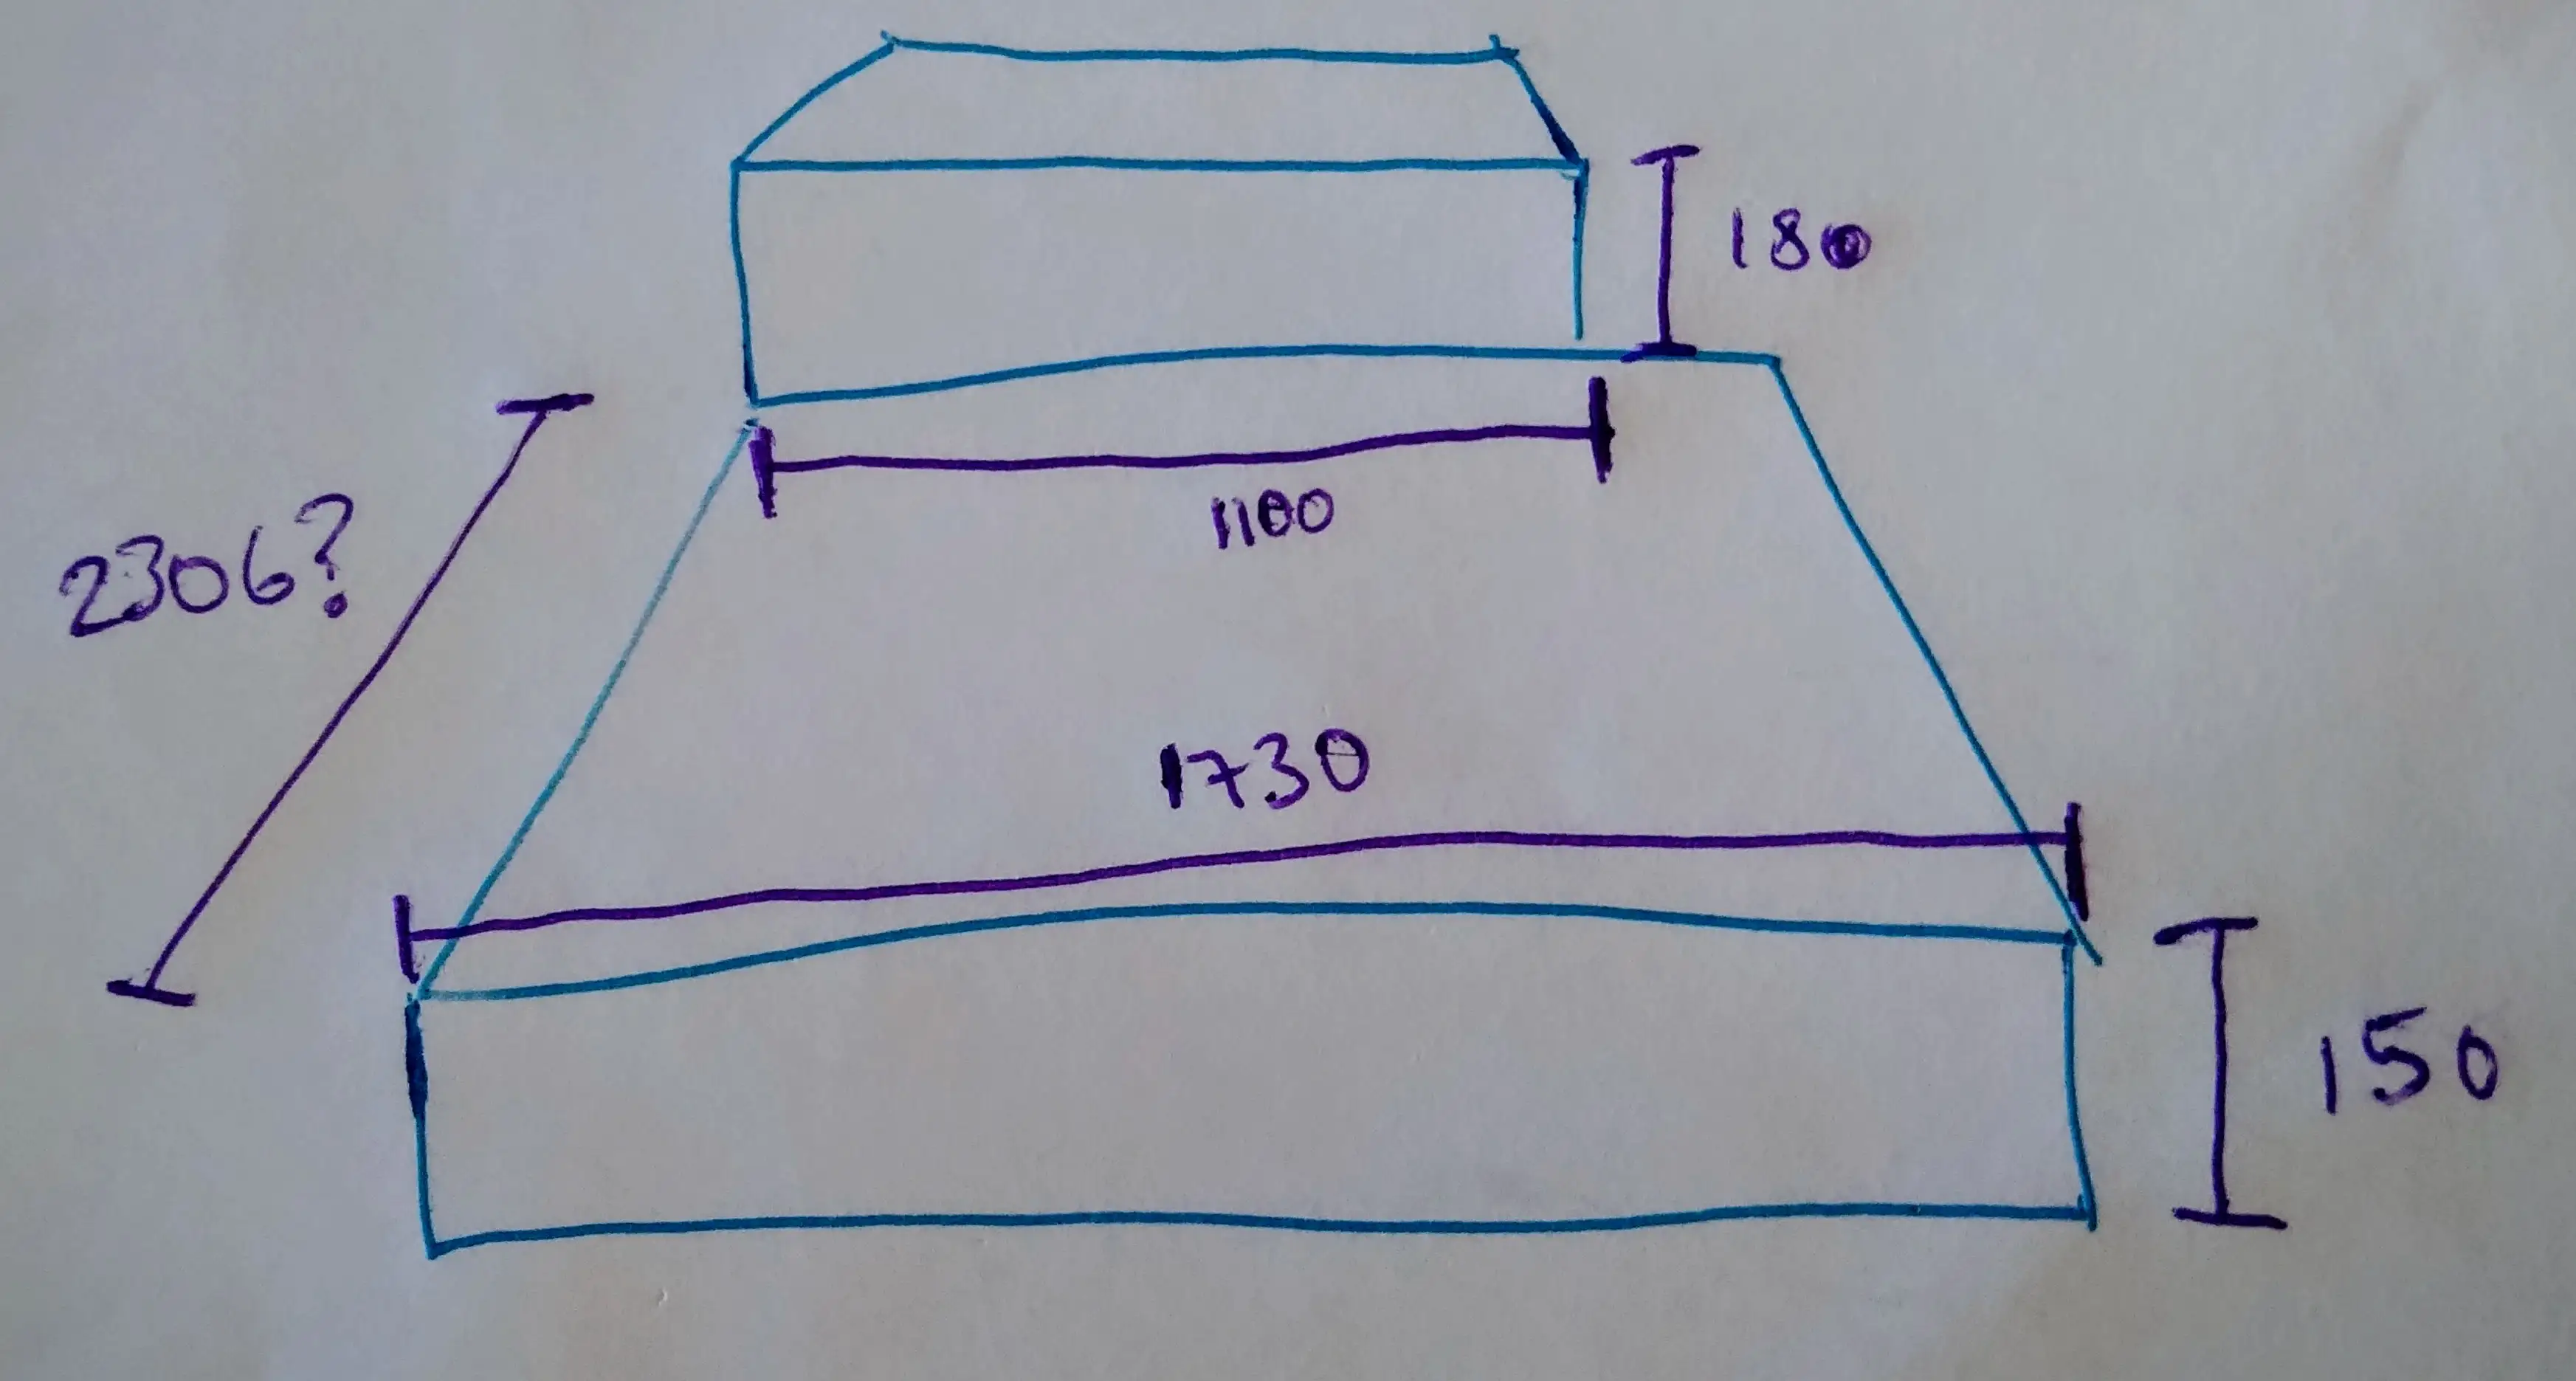 180
1100
2306?
1730
150